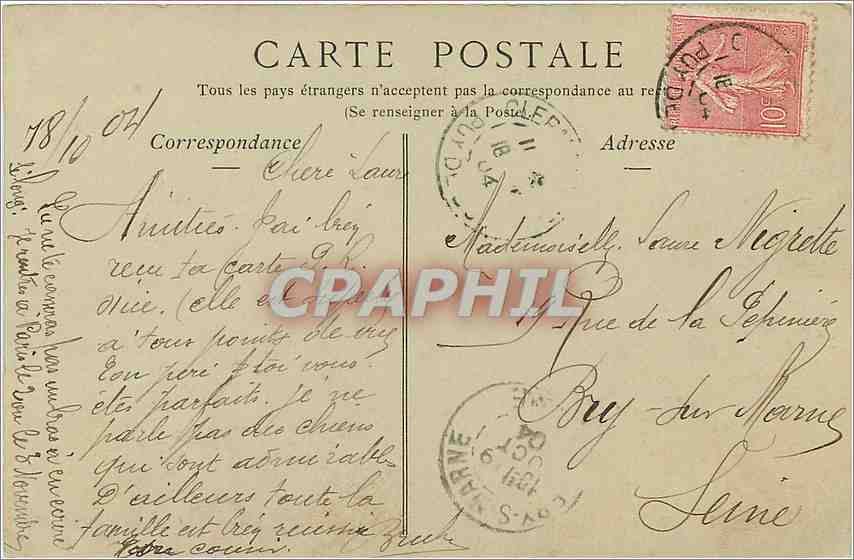 CARTE POSTALE
Tous les pays étrangers n'acceptent pas la correspondance au re
(Se renseigner à la Poste)
Correspondance
Adresse
18/10 04
Chère Laure
Amitiés. J'ai bien
reçu ta carte
Nice. (elle est
à tous points de vue
Ton père & toi vous
êtes parfaits. Je ne
parle pas des chiens
qui sont admirables
D'ailleurs toute la
famille est bien réussie
Tu ne te casseras pas un bras à en écrire
si long. Je rentre à Paris le 2 ou le 3 Novembre
Mademoiselle Laure Nigrette
9 Rue de la Pépinière
Bry-sur Marne
Seine
10c
PUY DU
CLER
PUY D
11
18
04
BRY-S-MARNE
19
OCT
04
CPAPHIL